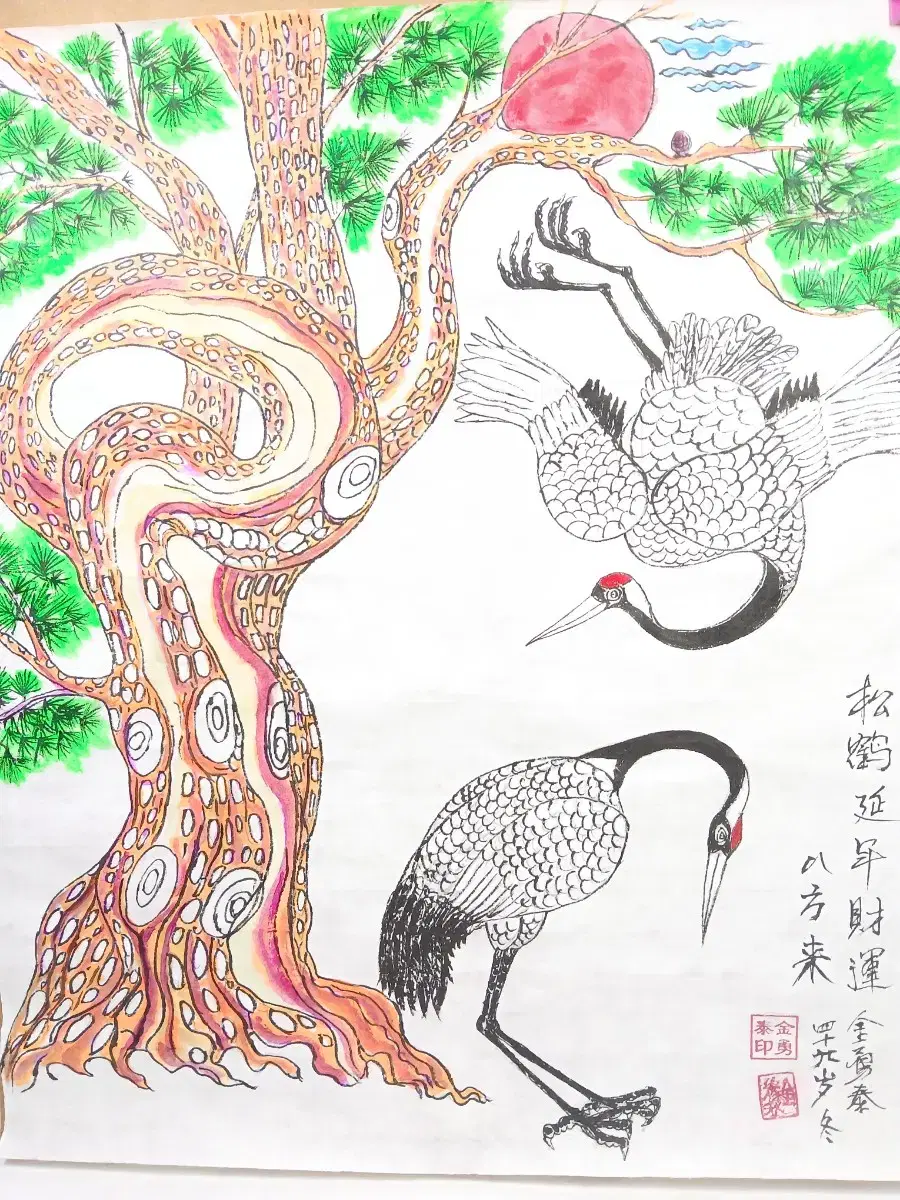 松鹤延年財運
八方来
金勇泰
四十九岁冬
金勇
泰印